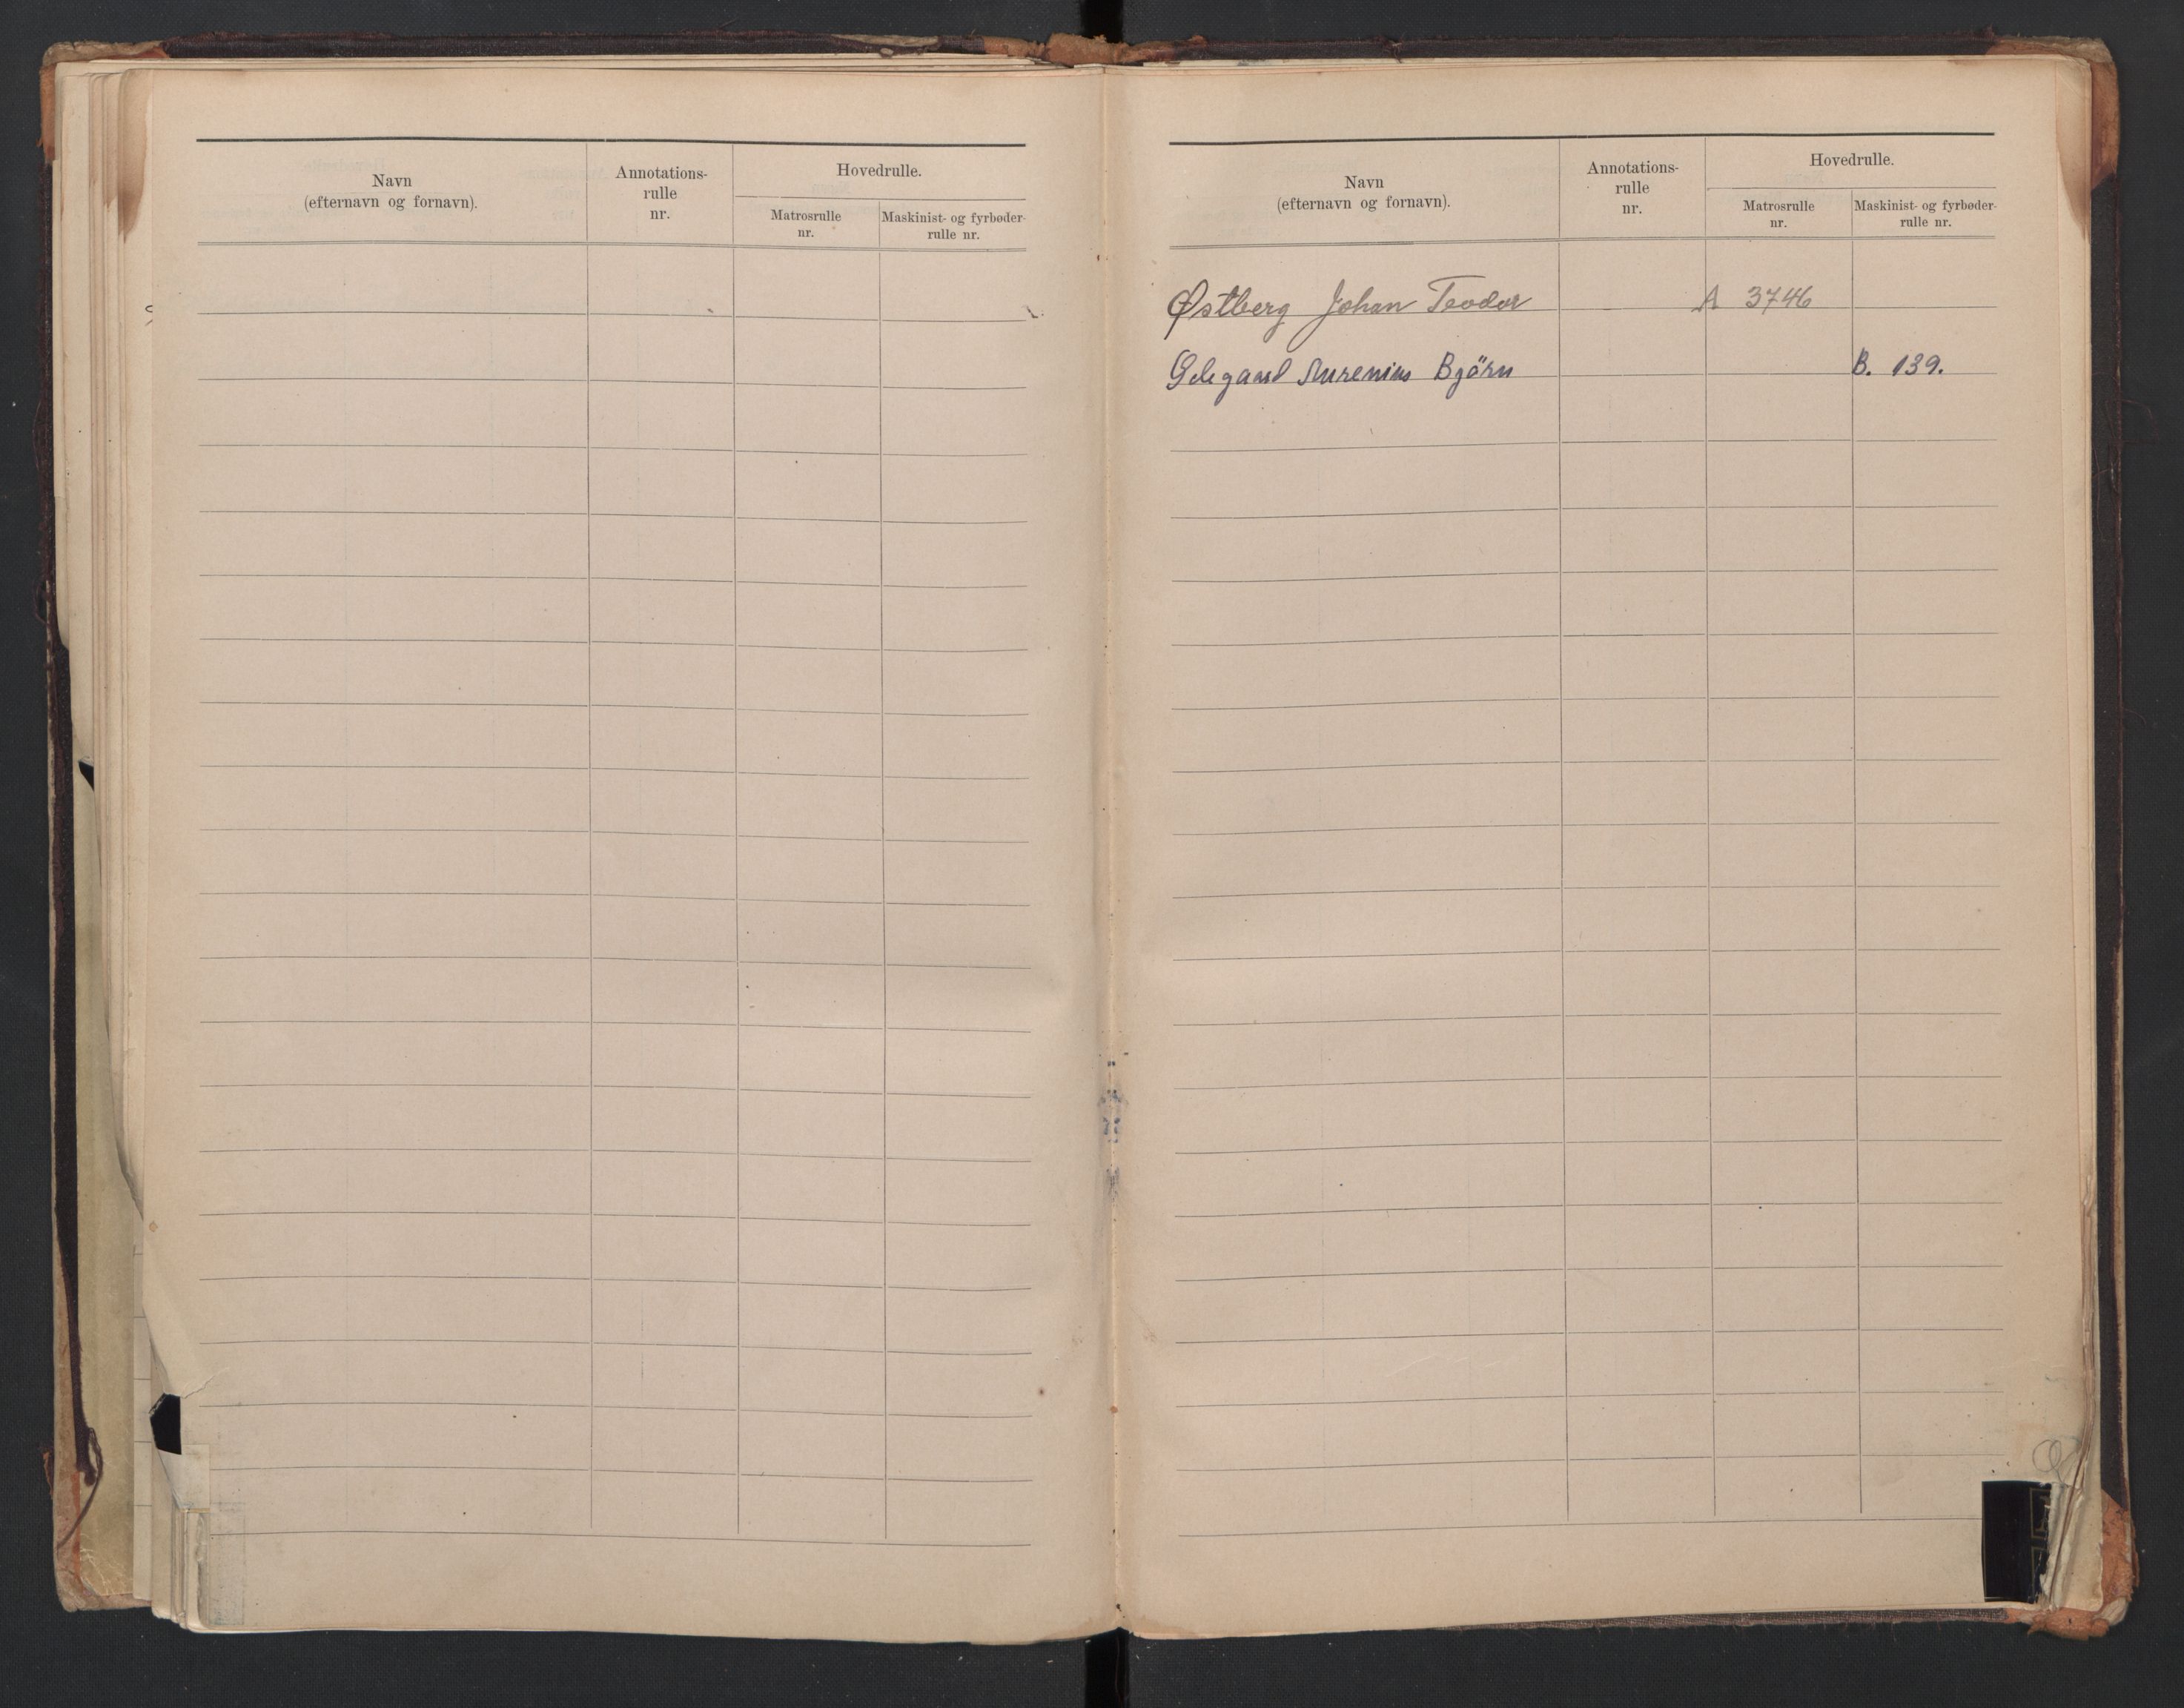 Navn
(efternavn og fornavn).
Annotations-
rulle
nr.
Hovedrulle.
Matrosrulle
nr.
Maskinist- og fyrbøder-
rulle nr.
Navn
(efternavn og fornavn).
Annotations-
rulle
nr.
Hovedrulle.
Matrosrulle
nr.
Maskinist- og fyrbøder-
rulle nr.
Østberg Johan Teodor A 3746
Björn B. 139.